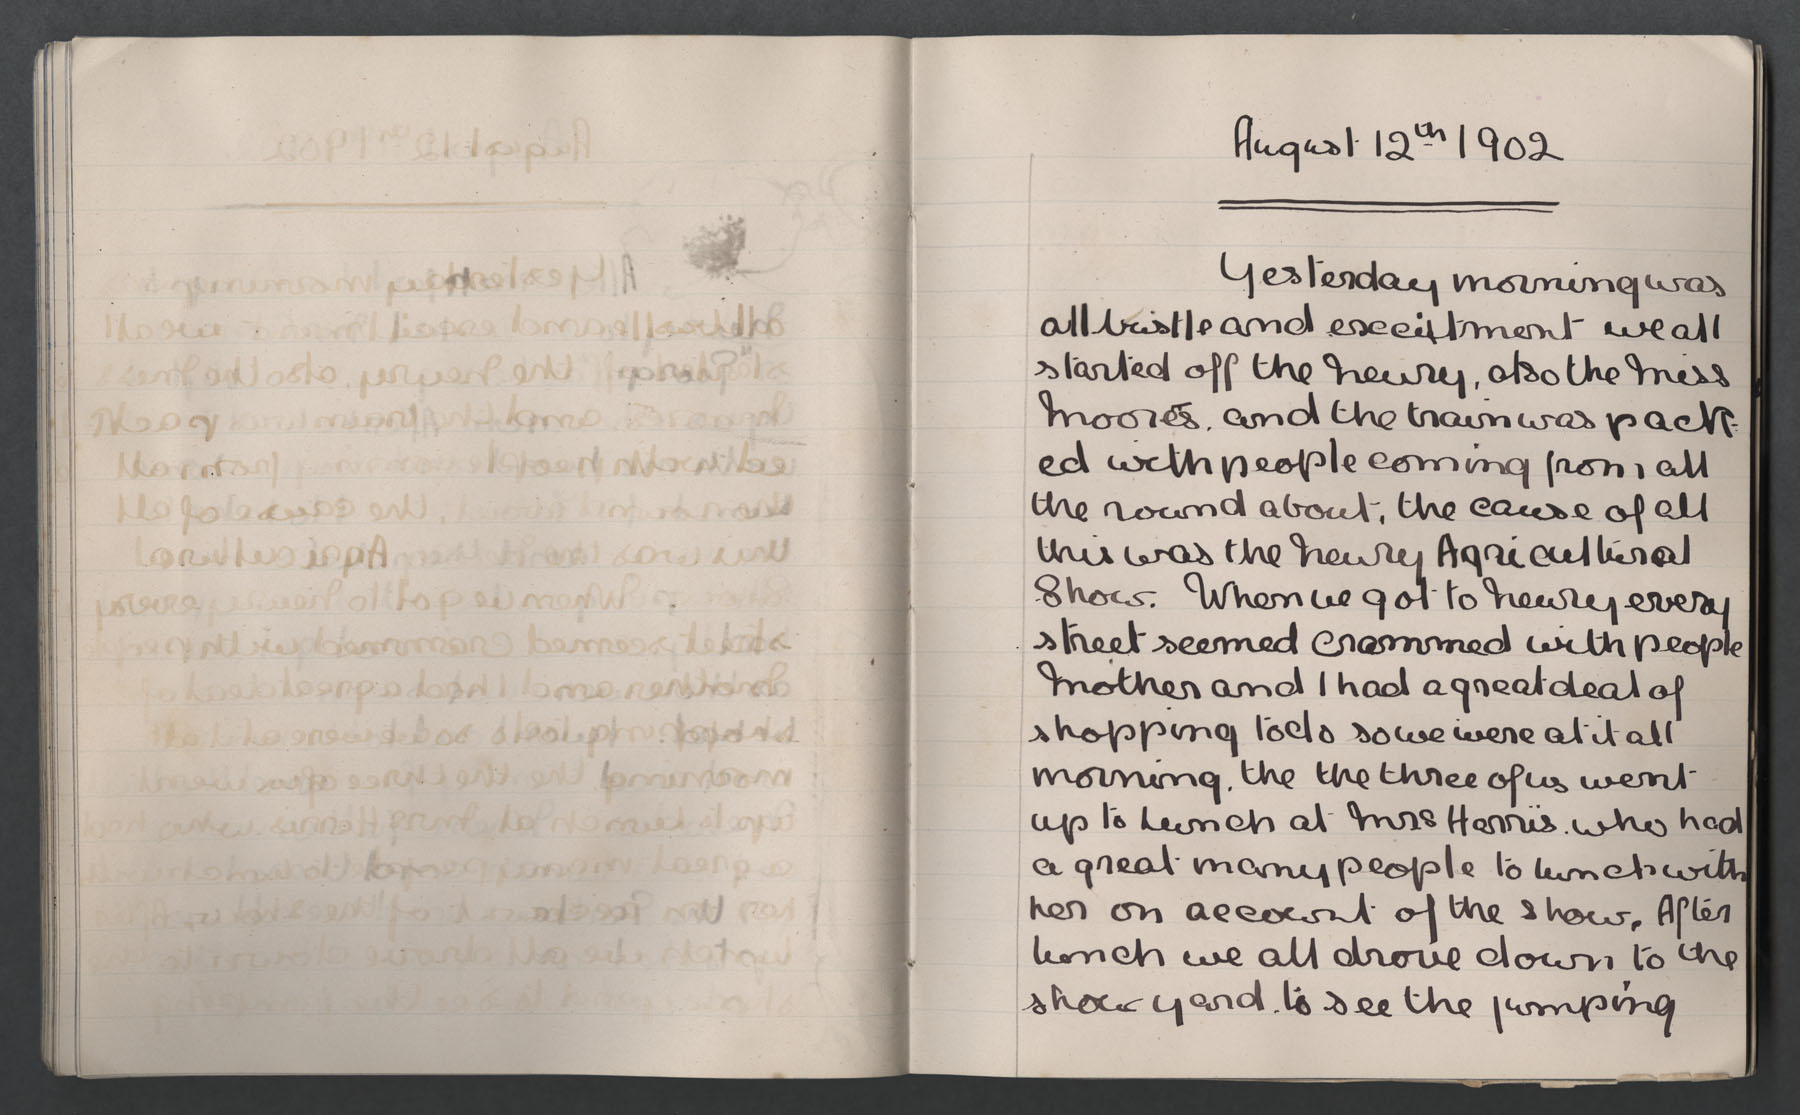 August 12th 1902
Yesterday morning was
all bustle and exceitment we all
started off the Newry, also the Miss
Moores, and the train was pack-
ed with people coming from all
the round about, the cause of all
this was the Newry Agricultural
Show. When we got to Newry every
street seemed crammed with people
Mother and I had a great deal of
shopping to do so we were at it all
morning, the the three of us went
up to lunch at Mrs Harris. who had
a great many people to lunch with
her on account of the show. After
lunch we all drove down to the
show yard. to see the jumping